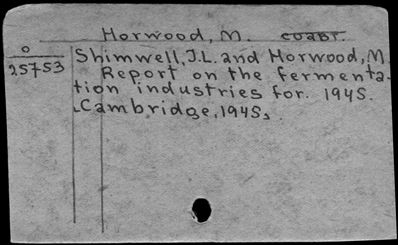 Horwood, M. coabt.
O
25753
Shimwell, J.L. and Horwood, M.
Report on the fermenta-
tion industries for. 1945.
Cambridge, 1945,